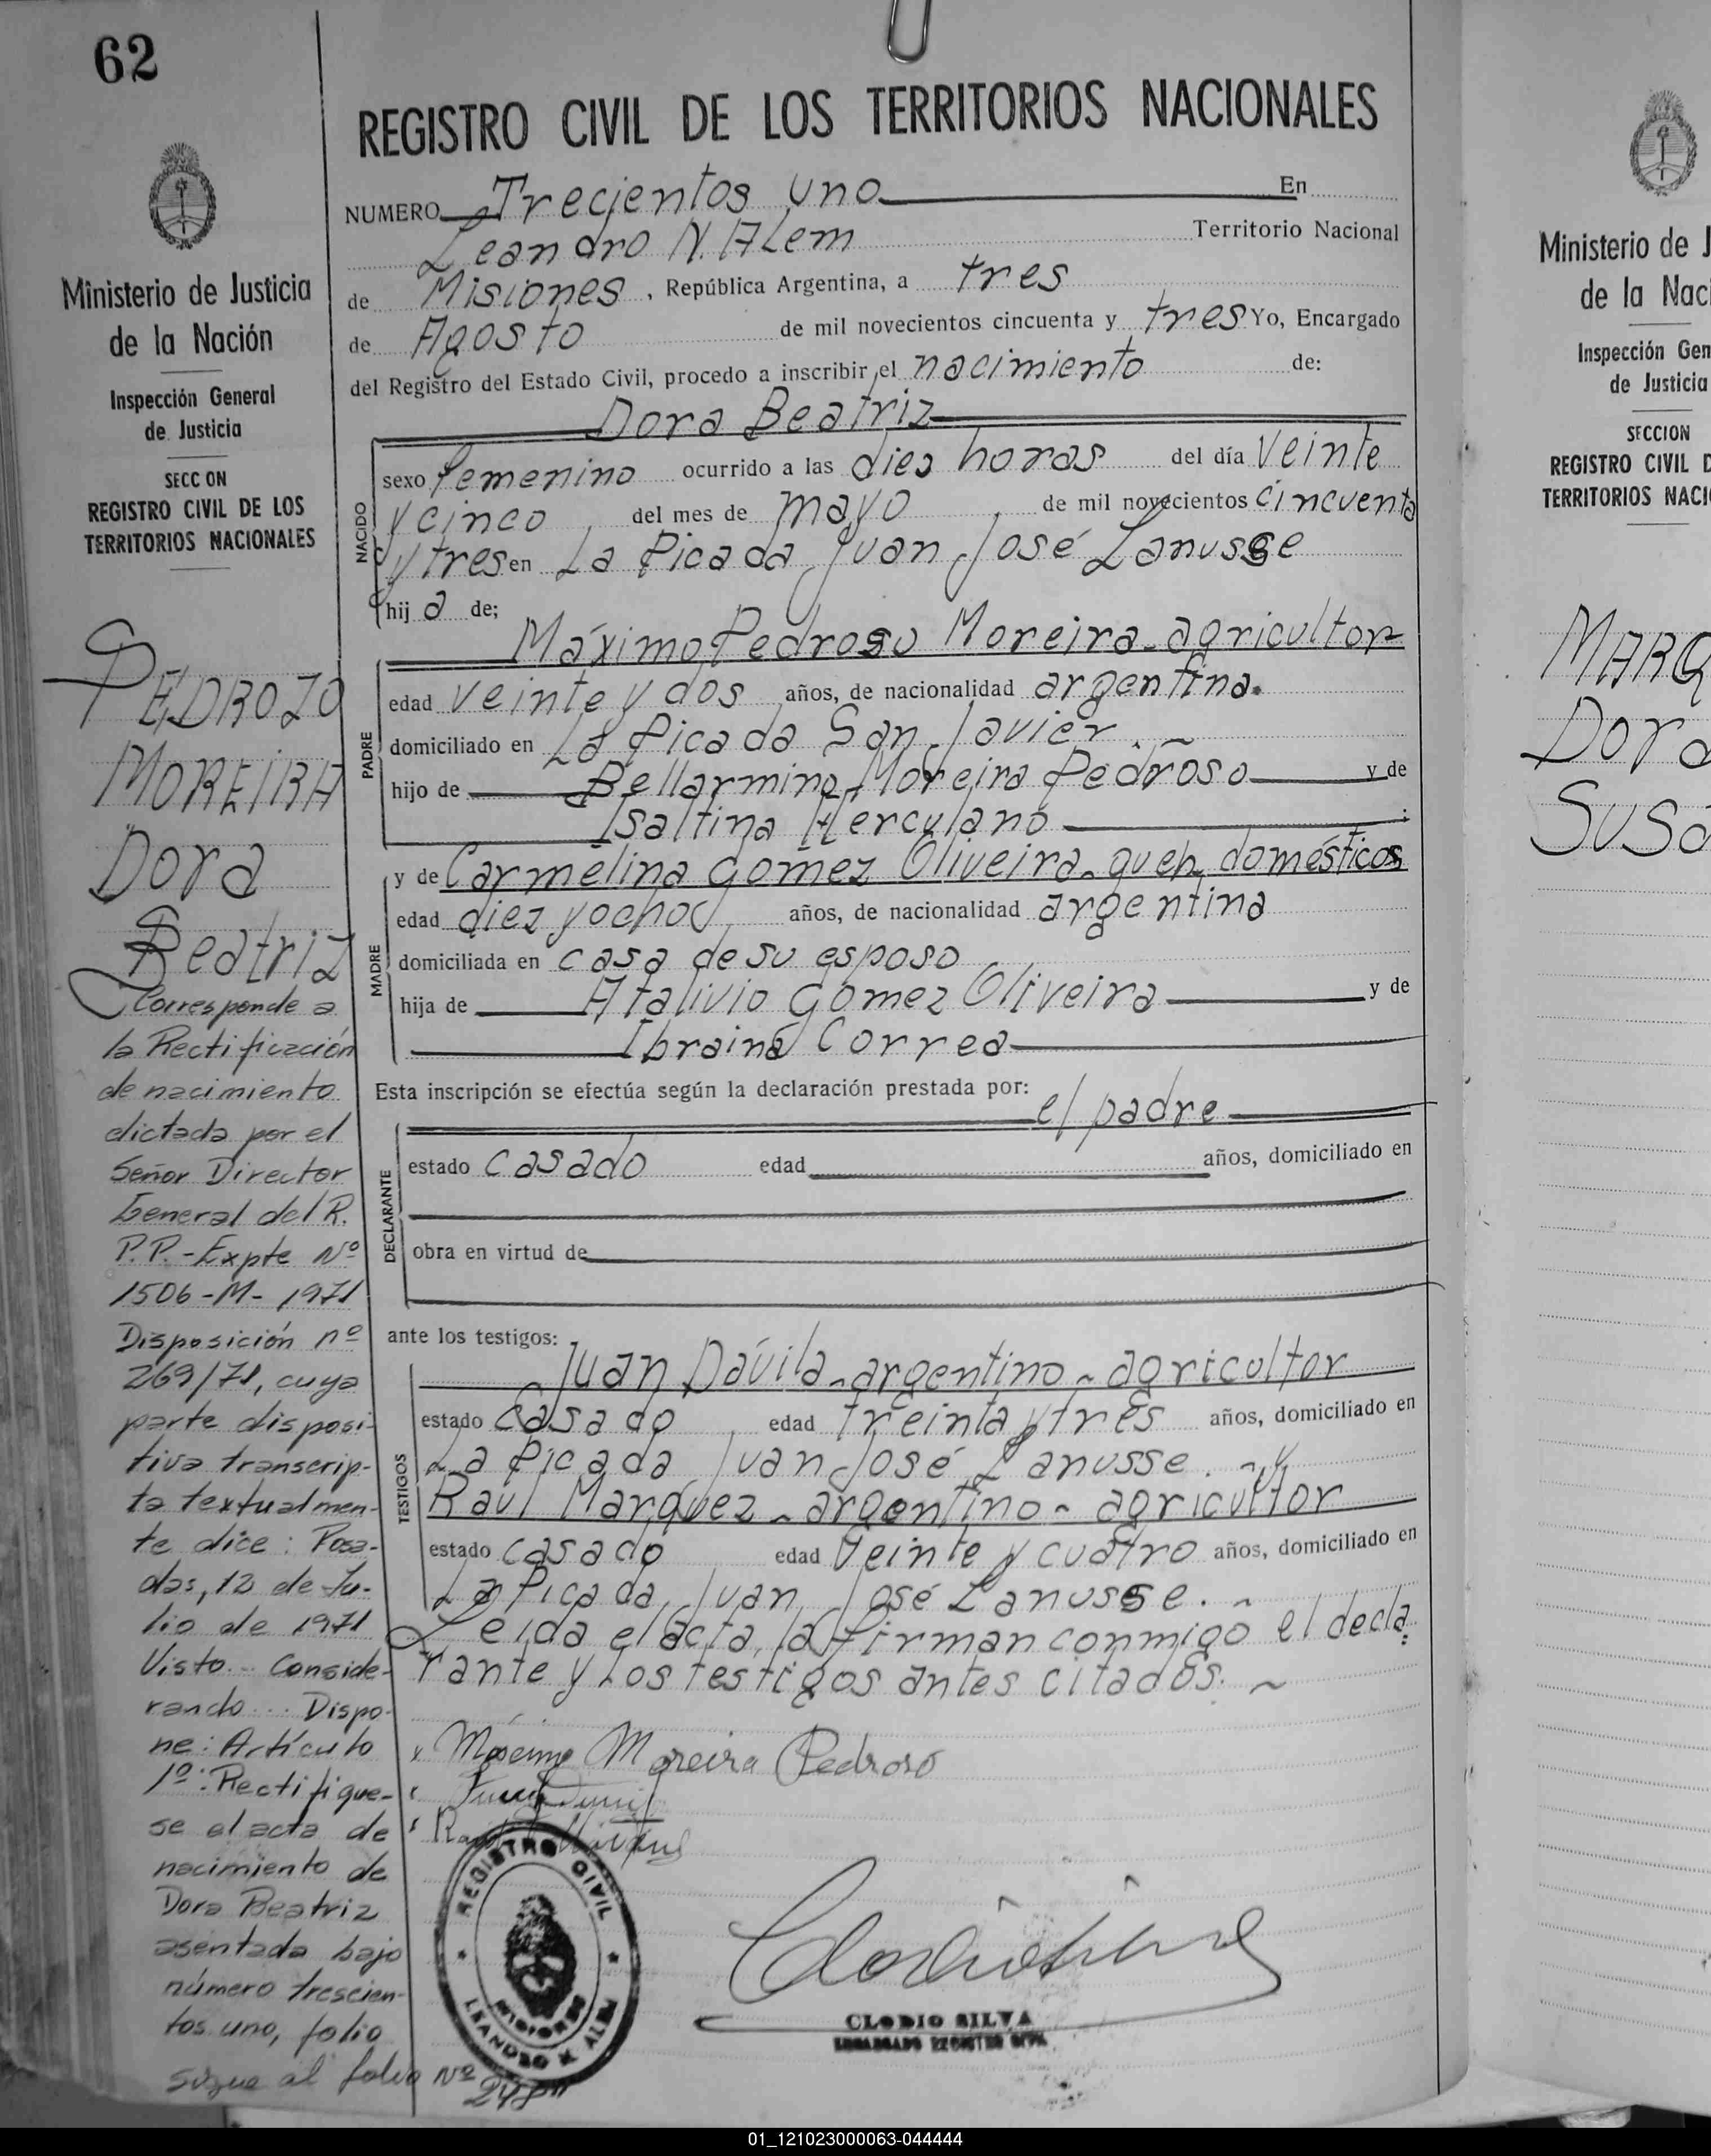 62
REGISTRO CIVIL DE LOS TERRITORIOS NACIONALES
NUMERO Trecientos uno En
Leandro N. ALem Territorio Nacional
de Misiones, República Argentina, a tres
de Agosto de mil novecientos cincuenta y tres Yo, Encargado
del Registro del Estado Civil, procedo a inscribir el nacimiento de:
Dora Beatriz
NACIDO
sexo femenino ocurrido a las diez horas del día veinte
y cinco del mes de mayo de mil novecientos cincuenta
y tres en La Picada Juan José Lanusse
hij a de;
Máximo Pedroso Moreira - agricultor
PADRE
edad veinte y dos años, de nacionalidad argentina.
domiciliado en La Picada San Javier. ~
hijo de Bellarmino Moreira Pedroso y de
Isaltina Herculano ;
y de Carmelina Gomez Oliveira - queh. domésticos
MADRE
edad diez y ocho años, de nacionalidad argentina
domiciliada en casa de su esposo
hija de Atalivio Gomez Oliveira y de
Ibraina Correa
Esta inscripción se efectúa según la declaración prestada por:
el padre
DECLARANTE
estado casado edad años, domiciliado en
obra en virtud de
ante los testigos:
Juan Dávila - argentino - agricultor
TESTIGOS
estado casado edad treinta y tres años, domiciliado en
La Picada Juan José Lanusse. ~ y
Raúl Marquez - argentino - agricultor
estado casado edad veinte y cuatro años, domiciliado en
La Picada Juan José Lanusse. ~
Leida el acta, la firman conmigo el decla
rante y Los testigos antes citados. ~
Máximo Moreira Pedroso
REGISTRO CIVIL
MISIONES
LEANDRO N. ALEM
CLODIO SILVA
ENCARGADO REGISTRO CIVIL
Ministerio de Justicia
de la Nación
Inspección General
de Justicia
SECC ON
REGISTRO CIVIL DE LOS
TERRITORIOS NACIONALES
PEDROZO
MOREIRA
Dora
Beatriz
Corresponde a
la Rectificación
de nacimiento
dictada por el
Señor Director
General del R.
P.P.-Expte Nº
1506-M-1971
Disposición nº
269/71, cuya
parte disposi-
tiva transcrip-
ta textualmen-
te dice: Posa-
das, 12 de Ju-
lio de 1971
Visto... Conside-
rando... Dispo-
ne: Artículo
1º: Rectifique-
se el acta de
nacimiento de
Dora Beatriz
asentada bajo
número trescien-
tos uno, folio
sigue al folio Nº
Ministerio de J
de la Naci
Inspección Gen
de Justicia
SECCION
REGISTRO CIVIL D
TERRITORIOS NACI
MARQ
Dora
Susa
01_121023000063-044444